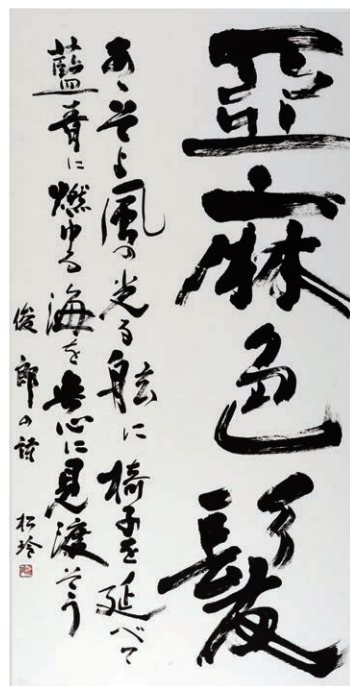 亞麻色髪
あゝそよ風の光る舷に椅子を延べて
藍青に燃ゆる海を無心に見渡そう
俊郎の詩 松玲